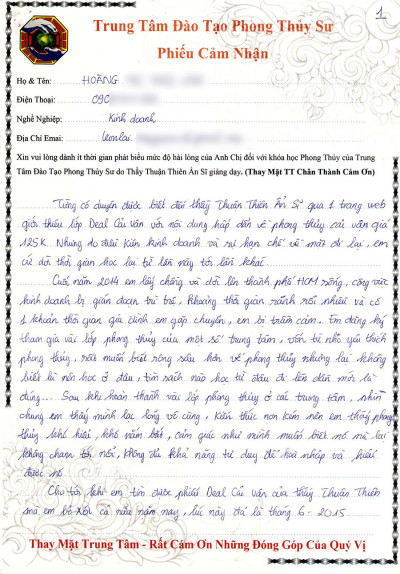 1
Trung Tâm Đào Tạo Phong Thủy Sư
Phiếu Cảm Nhận
Họ & Tên: HOÀNG
Điện Thoại: 090
Nghề Nghiệp: Kinh doanh
Địa Chỉ Emai:
Xin vui lòng dành ít thời gian phát biểu mức độ hài lòng của Anh Chị đối với khóa học Phong Thủy của Trung
Tâm Đào Tạo Phong Thủy Sư do Thầy Thuận Thiên Ẩn Sĩ giảng dạy. (Thay Mặt TT Chân Thành Cảm Ơn)
Từng có duyên được biết đến thầy Thuận Thiên Ẩn Sĩ qua 1 trang web
giới thiệu lớp Deal Cải vận với nội dung hấp dẫn về phong thủy cải vận giá
125K. Nhưng do điều kiện kinh doanh và sự hạn chế về mặt đi lại, em
cứ dời thời gian học lại từ lần này tới lần khác.
Cuối năm 2014 em lấy chồng và dời lên thành phố HCM sống, công việc
kinh doanh bị gián đoạn trì trệ, khoảng thời gian rảnh rỗi nhiều và có
1 khoản thời gian gia đình em gặp chuyện, em bị trầm cảm. Em đăng ký
tham gia vài lớp phong thủy của một số trung tâm, vốn từ nhỏ yêu thích
phong thủy, rất muốn biết rộng sâu hơn về phong thủy nhưng lại không
biết là nên học ở đâu, tìm sách nào học từ đâu đi lên đến mới là
đúng... Sau khi hoàn thành vài lớp phong thủy ở các trung tâm, nhìn
chung em thấy mình lạc lõng vô cùng, kiến thức non kém nên em thấy phong
thủy khó hiểu, khó nắm bắt, cảm giác như mình muốn biết nó mà lại
không chạm tới nổi, không đủ khả năng tư duy để hòa nhập và hiểu
được nó.
Cho tới khi em tìm được phiếu Deal Cải vận của thầy Thuận Thiên
mà em bỏ xót cả năm nay, lúc này đã là tháng 6-2015
Thay Mặt Trung Tâm - Rất Cảm Ơn Những Đóng Góp Của Quý Vị